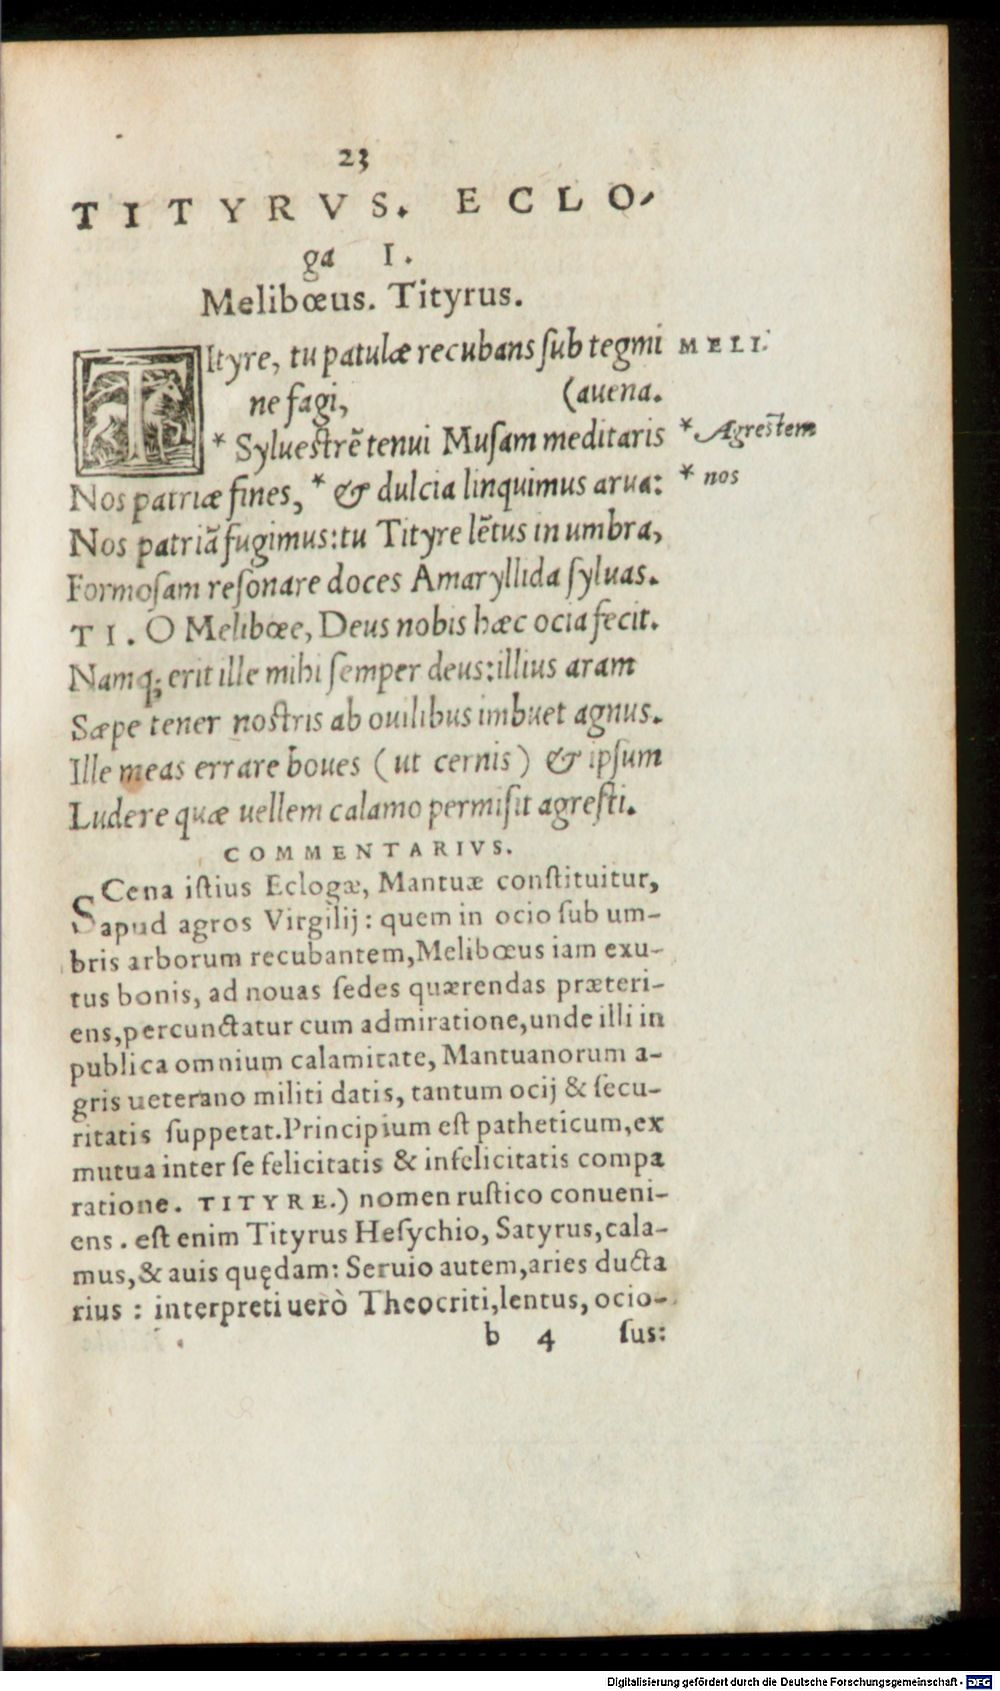 23
TITYRVS. ECLO-
ga I.
Melibœus. Tityrus.
TItyre, tu patulæ recubans ſub tegmi MELI.
ne fagi, (auena.
* Sylueſtrẽ tenui Muſam meditaris * Agreſtem
Nos patriæ fines, * & dulcia linquimus arua: * nos
Nos patriã fugimus: tu Tityre lẽtus in umbra,
Formoſam reſonare doces Amaryllida ſyluas.
TI. O Melibœe, Deus nobis hæc ocia fecit.
Namq; erit ille mihi ſemper deus: illius aram
Sæpe tener noſtris ab ouilibus imbuet agnus.
Ille meas errare boues (ut cernis) & ipſum
Ludere quæ uellem calamo permiſit agreſti.
COMMENTARIVS.
SCena iſtius Eclogæ, Mantuæ conſtituitur,
apud agros Virgilij: quem in ocio ſub um-
bris arborum recubantem, Melibœus iam exu-
tus bonis, ad nouas ſedes quærendas præteri-
ens, percunctatur cum admiratione, unde illi in
publica omnium calamitate, Mantuanorum a-
gris ueterano militi datis, tantum ocij & ſecu-
ritatis ſuppetat. Principium eſt patheticum, ex
mutua inter ſe felicitatis & infelicitatis compa
ratione. TITYRE.) nomen ruſtico conueni-
ens. eſt enim Tityrus Heſychio, Satyrus, cala-
mus, & auis quędam: Seruio autem, aries ducta
rius: interpreti uerò Theocriti, lentus, ocio-
b 4 ſus:
Digitalisierung gefördert durch die Deutsche Forschungsgemeinschaft - DFG